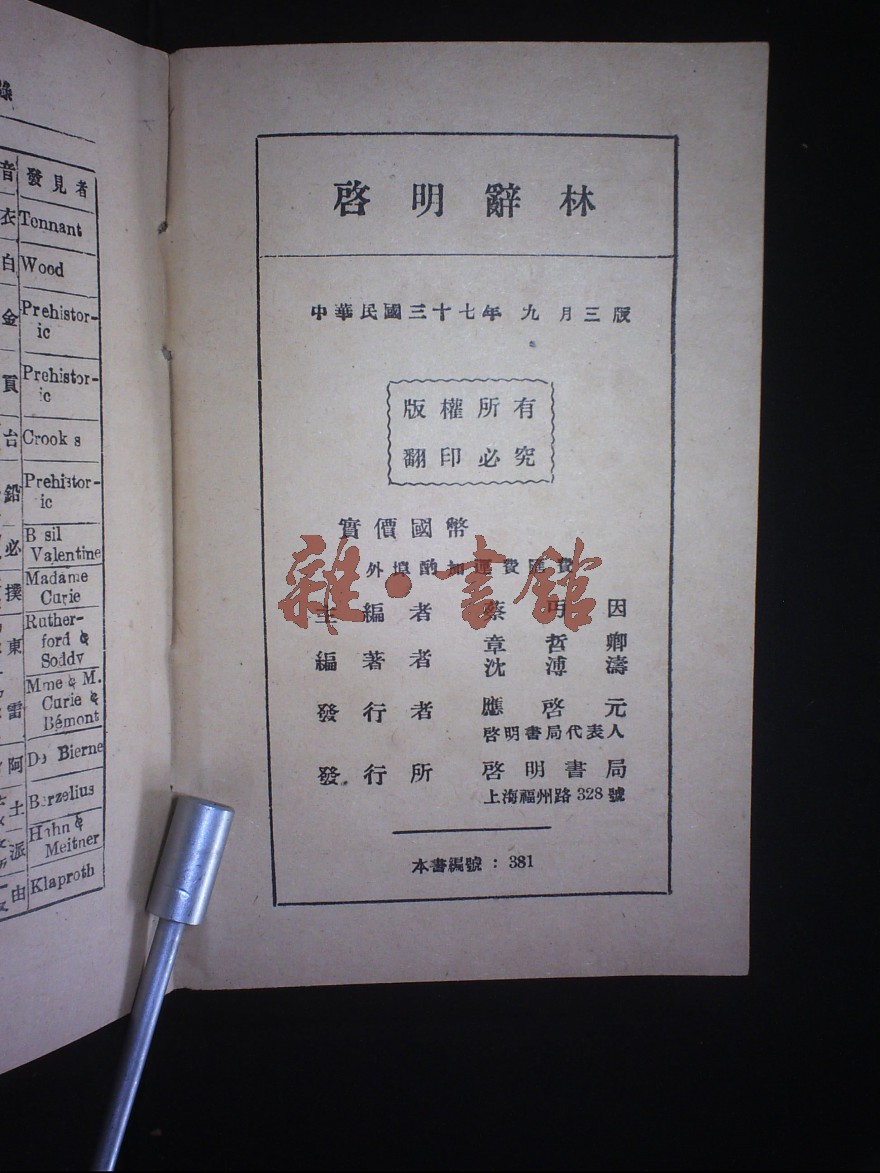 錄
音 發見者
衣 Tennant
白 Wood
金 Prehistor-
ic
頁 Prehistor-
ic
台 Crook s
鉛 Prehistor-
ic
必 B sil
Valentine
撲 Madame
Curie
東 Ruther-
ford &
Soddy
雷 Mme & M.
Curie &
Bémont
阿 De Bierne
土 Berzelius
派 Hahn &
Meitner
由 Klaproth
啓明辭林
中華民國三十七年九月三版
版權所有
翻印必究
實價國幣
外埠酌加運費匯費
雜·書館
主編者 蔡丏因
編著者 章哲卿
沈溥濤
發行者 應啓元
啓明書局代表人
發行所 啓明書局
上海福州路328號
本書編號：381